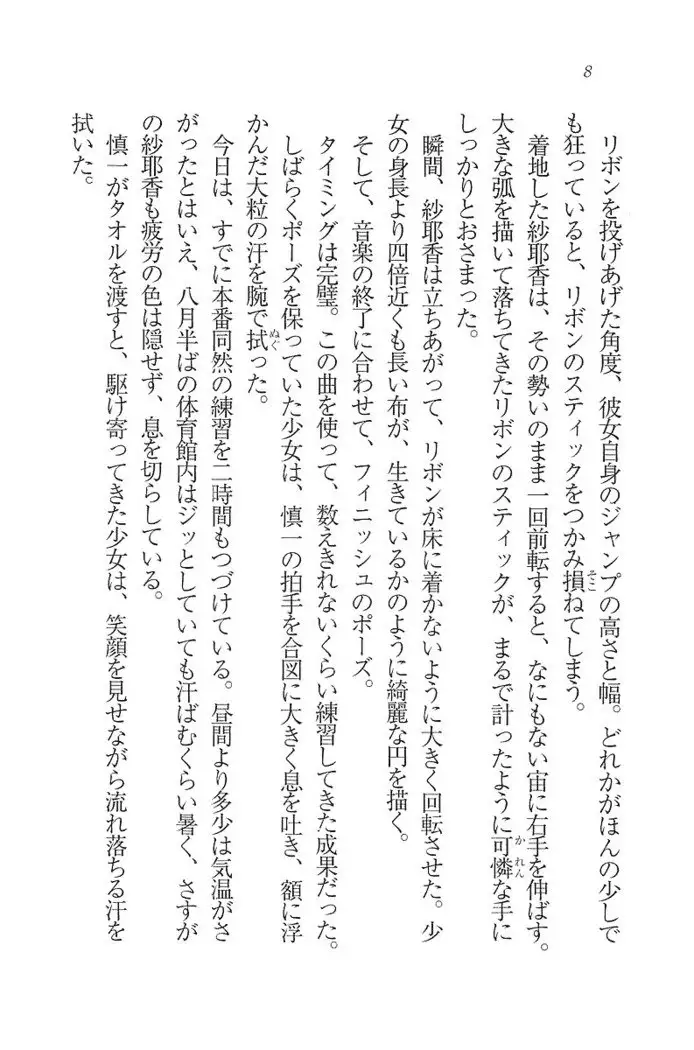 8
リボンを投げあげた角度、彼女自身のジャンプの高さと幅。どれかがほんの少しで
も狂っていると、リボンのスティックをつかみ損ねてしまう。
そこ
着地した紗耶香は、その勢いのまま一回前転すると、なにもない宙に右手を伸ばす。
大きな弧を描いて落ちてきたリボンのスティックが、まるで計ったように可憐な手に
かれん
しっかりとおさまった。
瞬間、紗耶香は立ちあがって、リボンが床に着かないように大きく回転させた。少
女の身長より四倍近くも長い布が、生きているかのように綺麗な円を描く。
そして、音楽の終了に合わせて、フィニッシュのポーズ。
タイミングは完璧。この曲を使って、数えきれないくらい練習してきた成果だった。
しばらくポーズを保っていた少女は、慎一の拍手を合図に大きく息を吐き、額に浮
かんだ大粒の汗を腕で拭った。
ぬぐ
今日は、すでに本番同然の練習を二時間もつづけている。昼間より多少は気温がさ
がったとはいえ、八月半ばの体育館内はジッとしていても汗ばむくらい暑く、さすが
の紗耶香も疲労の色は隠せず、息を切らしている。
慎一がタオルを渡すと、駆け寄ってきた少女は、笑顔を見せながら流れ落ちる汗を
拭いた。